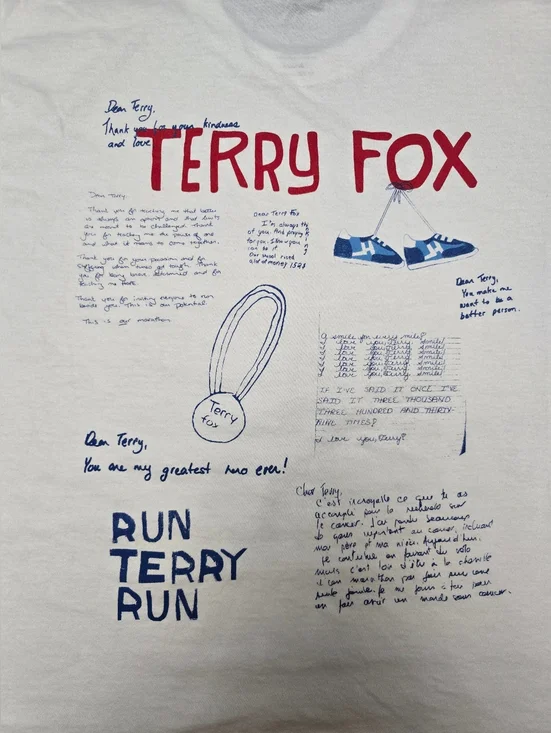 Dear Terry,
Thank you for your kindness
and love
TERRY FOX
Dear Terry,
Thank you for teaching me that
is always an and that limits
are meant to be challenged. Thank
you for teaching me the of
and what it means to come together.
Thank you for your passion and for
when times got tough. Thank
you for being determined and for
teaching me
Thank you for inviting everyone to run
beside you. This is our potential.
This is our marathon.
Dear Terry Fox
I'm always th
of you. And praying
for you. I
can do it
Our school rised
alot of money 152$
Dear Terry,
You make me
want to be a
better person.
Terry
fox
A smile for every mile?
I love you, Terry, smile!
I love you, Terry, smile!
I love you, Terry, smile!
I love you, Terry, smile!
I love you, Terry, smile!
IF I'VE SAID IT ONCE I'VE
SAID IT THREE THOUSAND
THREE HUNDRED AND THIRTY-
NINE TIMES?
I love you, Terry?
Dear Terry,
You are my greatest hero ever!
RUN
TERRY
RUN
Cher Terry,
C'est incroyable ce que tu as
accompli pour la recherche sur
le cancer. J'ai perdu beaucoup
de gens important au cancer, incluant
mon père et ma nièce. Aujourd'hui,
je contribue en faisant du vélo
mais c'est loin d'être à la cheville
d'un marathon par jour sur une
seule jambe. Je me joins à toi pour
un jour avoir un monde sans cancer.